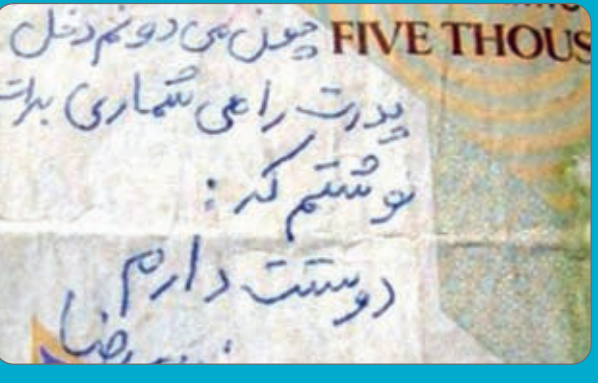 FIVE THOUS
چون می دونم دخل
پدرت را می شماری برات
نوشتم که :
دوستت دارم
رضا